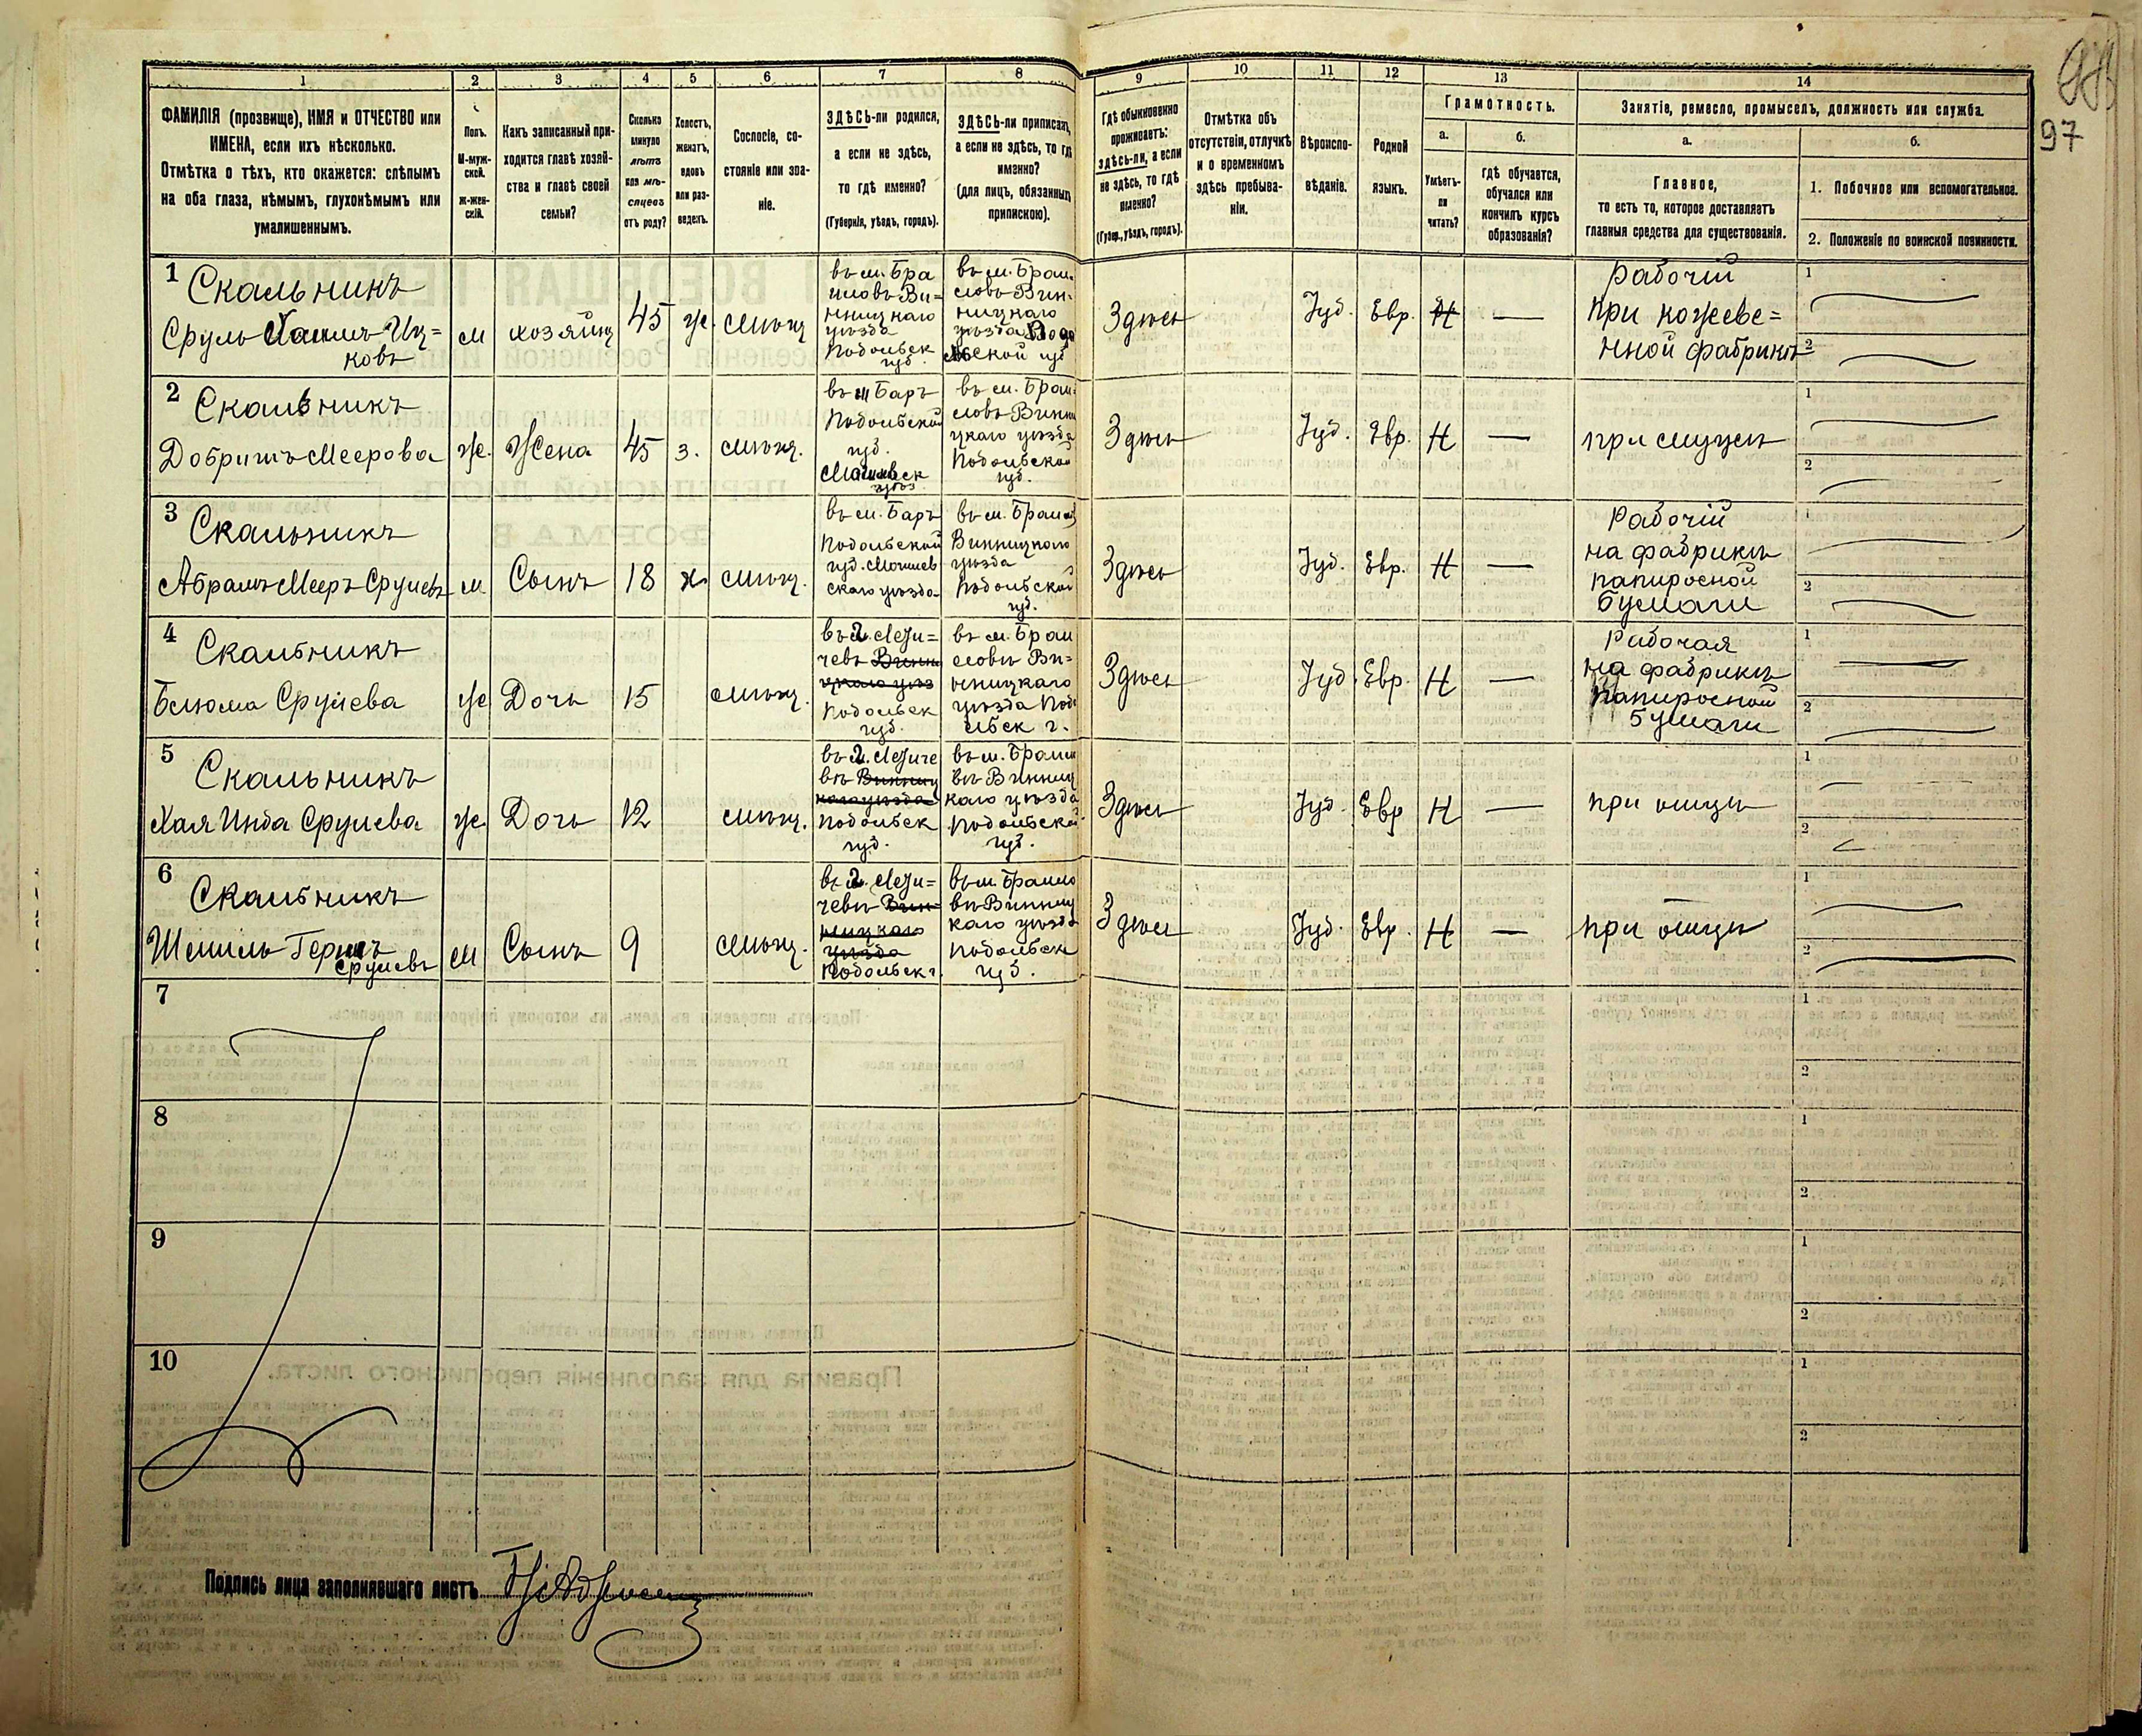 97
1
2
3
4
5
6
7
8
9
10
11
12
13
14
ФАМИЛІЯ (прозвище), ИМЯ и ОТЧЕСТВО или
ИМЕНА, если ихъ нѣсколько.
Отмѣтка о тѣхъ, кто окажется: слѣпымъ
на оба глаза, нѣмымъ, глухонѣмымъ или
умалишеннымъ.
Полъ.
М-муж-
ской.
ж-жен-
скій.
Какъ записанный при-
ходится главѣ хозяй-
ства и главѣ своей
семьи?
Сколько
минуло
лѣтъ
или мѣ-
сяцевъ
отъ роду?
Холостъ,
женатъ,
вдовъ
или раз-
веденъ.
Сословіе, со-
стояніе или зва-
ніе.
ЗДѢСЬ-ли родился,
а если не здѣсь,
то гдѣ именно?
(Губернія, уѣздъ, городъ).
ЗДѢСЬ-ли приписанъ,
а если не здѣсь, то гдѣ
именно?
(для лицъ, обязанныхъ
припискою).
Гдѣ обыкновенно
проживаетъ:
здѣсь-ли, а если
не здѣсь, то гдѣ
именно?
(Губер., уѣздъ, городъ).
Отмѣтка объ
отсутствіи, отлучкѣ
и о временномъ
здѣсь пребыва-
ніи.
Вѣроиспо-
вѣданіе.
Родной
языкъ.
Грамотность.
а.
б.
Умѣетъ-
ли
читать?
гдѣ обучается,
обучался или
кончилъ курсъ
образованія?
Занятіе, ремесло, промыселъ, должность или служба.
а.
б.
Главное,
то есть то, которое доставляетъ
главныя средства для существованія.
1. Побочное или вспомогательное.
2. Положеніе по воинской повинности.
1
Скальникъ
Сруль Хаимъ Иц=
ковъ
м
хозяинъ
45
ж.
мѣщ
въ м. Бра
иловъ Ви=
нницкаго
уѣзда
Подольск
губ.
въ м. Браи
ловъ Вин-
ницкаго
уѣзда Подо
льской губ
Здѣсь
Іуд.
Евр.
Н
—
Рабочій
при кожеве=
нной фабрикѣ
1
2
2
Скальникъ
Добришъ Меерова
же.
Жена
45
з.
мѣщ.
въ м Баръ
Подольской
губ.
Могилевск
уѣз
въ м. Браи
ловъ Винни
цкаго уѣзда
Подольской
губ.
Здѣсь
Іуд.
Евр.
Н
—
при мужѣ
1
2
3
Скальникъ
Абрамъ Мееръ Срулевъ
м.
Сынъ
18
х.
мѣщ.
въ м. Баръ
Подольской
губ. Могилев
скаго уѣзда
въ м. Браил
Винницкаго
уѣзда
Подольской
губ.
Здѣсь
Іуд.
Евр.
Н
—
Рабочій
на фабрикѣ
папиросной
бумаги
1
2
4
Скальникъ
Блюма Срулева
же
Дочь
15
мѣщ.
въ г. Лети=
чевъ Винни
цкаго уѣз
Подольск
губ.
въ м. Браи
ловъ Ви=
нницкаго
уѣзда Подо
льск г.
Здѣсь
Іуд.
Евр.
Н
—
Рабочая
на фабрикѣ
папиросной
бумаги
1
2
5
Скальникъ
Хая Инда Срулева
же
Дочь
12
мѣщ.
въ г. Летиче
въ Винниц
каго уѣзда
Подольск
губ.
въ м. Браило
въ Винниц
каго уѣзда
Подольской
губ.
Здѣсь
Іуд.
Евр
Н
—
при отцѣ
1
2
6
Скальникъ
Шмиль Гершъ
Срулевъ
м
Сынъ
9
мѣщ.
въ г. Лети=
чевъ Вин=
ницкаго
уѣзда
Подольск г.
въ м. Браило
въ Винниц
каго уѣзда
Подольск
губ.
Здѣсь
Іуд.
Евр.
Н
—
при отцѣ
1
2
7
1
2
8
1
2
9
1
2
10
1
2
Подпись лица заполнявшаго листъ